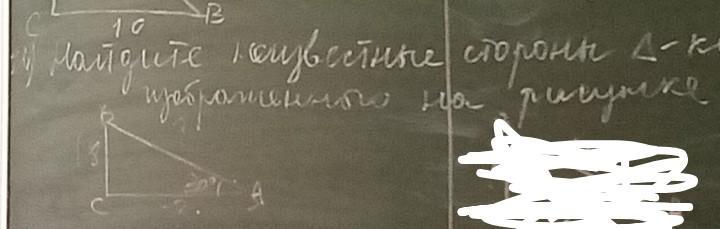 C 10 B
4) Найдите неизвестные стороны Δ-к
изображенного на рисунке
B
?
8
30° A
C ?